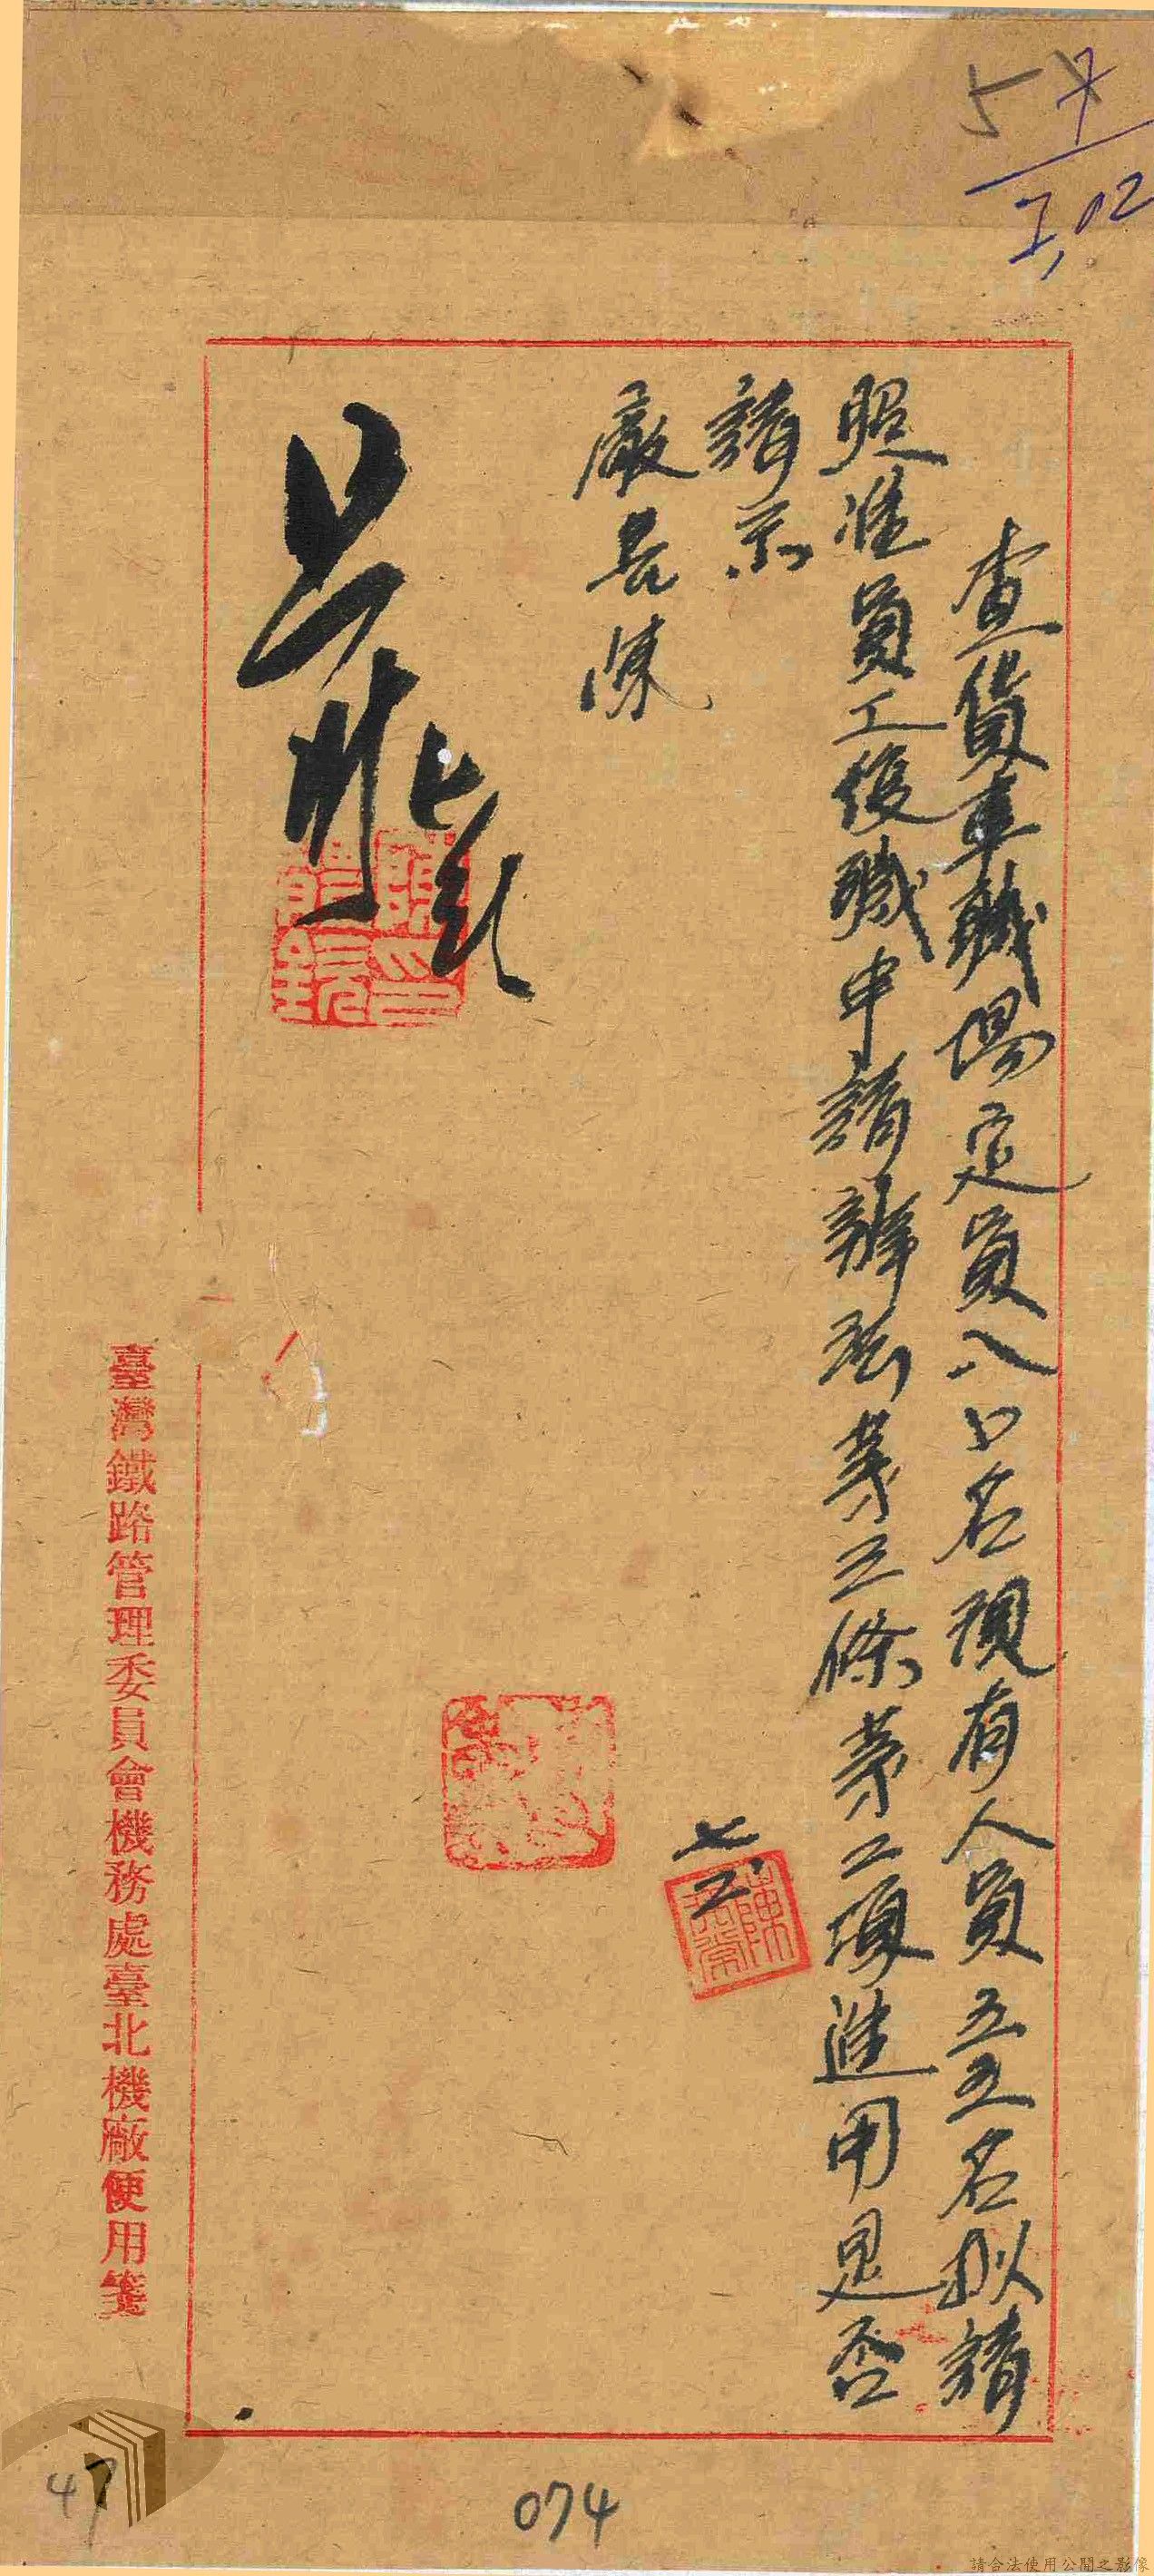 查貨車職場定員八十名現有人員五五名拟請
照准員工復職申請辦法第三條第二項進用是否
請示
廠長陳
七.二
臺灣鐵路管理委員會機務處臺北機廠便用箋
57
7/2,02
47
074
請合法使用公開之影像